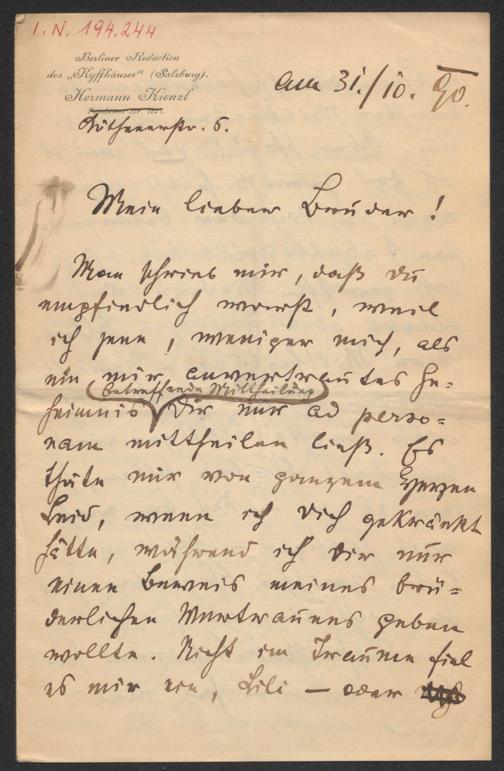 I.N. 194.244
Berliner Redaction
des „Kyffhäuser“ (Salzburg).
Hermann Kienzl
Köthenerstr. 5.
Am 31./10. 90.
Mein lieber Bruder!
Man schrieb mir, daß du
empfindlich warst, weil
ich jene, weniger mich, als
ein mir anvertrautes Ge-
betreffende Mittheilung
heimnis Dir nur ad perso-
nam mittheilen ließ. Es
thäte mir von ganzem Herzen
Leid, wenn ich Dich gekränkt
hätte, während ich Dir nur
einen Beweis meines brü-
derlichen Vertrauens geben
wollte. Nicht im Traume fiel
es mir ein, Lili — oder